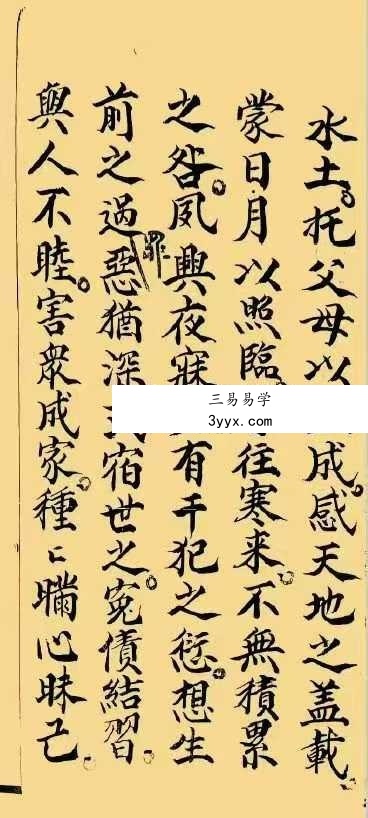 水土托父母以成感天地之盖載
蒙日月以照臨往寒来不無積累
之咎夙興夜寐有干犯之愆想生
前之過惡罪猶深宿世之冤債結習
與人不睦害眾成家種〻瞞心昧己
三易易学
3yyx.com